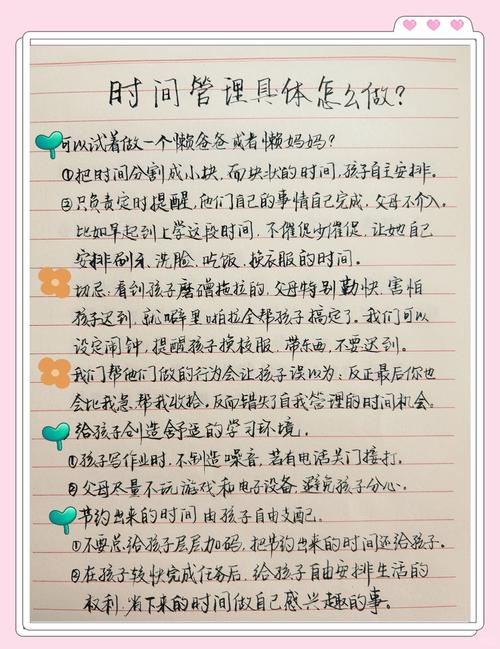 时间管理具体怎么做？
可以试着做一个懒爸爸或者懒妈妈？
①把时间分割成小块，而块状的时间，孩子自主安排。
②只负责定时提醒，他们自己的事情自己完成，父母不介入。
比如早起到上学这段时间，不催促少催促，让她自己
安排刷牙、洗脸、吃饭、换衣服的时间。
切忌：看到孩子磨蹭拖拉的，父母特别勤快，害怕
孩子迟到，就噼里啪拉全帮孩子搞定了。我们可以
设定闹钟，提醒孩子换校服，带东西，不要迟到。
我们帮他们做的行为会让孩子误以为：反正最后你也
会比我急，帮我收拾，反而错失了自我管理的时间机会。
给孩子创造舒适的学习环境。
①孩子写作业时，不制造噪音，若有电话关门接打。
②父母尽量不玩游戏和电子设备，避免孩子分心。
节约出来的时间由孩子自由支配。
①不要总给孩子层层加码，把节约出来的时间还给孩子。
②在孩子较快完成任务后，给孩子自由安排生活的
权利，省下来的时间做自己感兴趣的事。